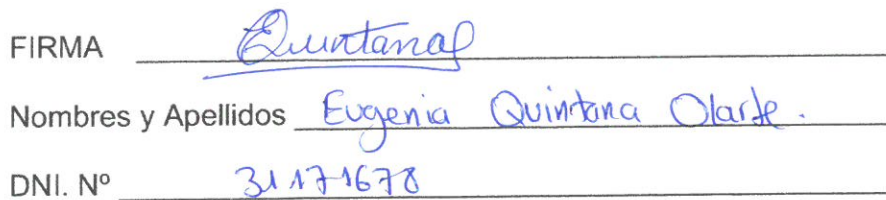 FIRMA Quintanaf
Nombres y Apellidos Eugenia Quintana Olarte.
DNI. Nº 31171678